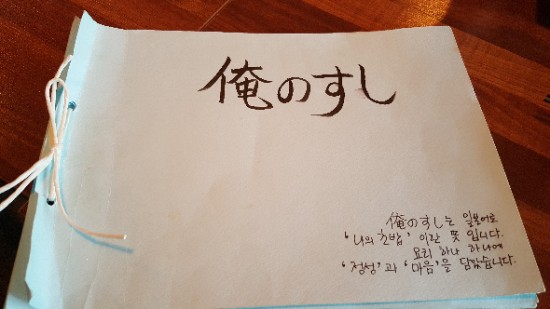 俺のすし
俺のすし는 일본어로
'나의 초밥' 이란 뜻 입니다.
요리 하나 하나에
'정성'과 '마음'을 담았습니다.